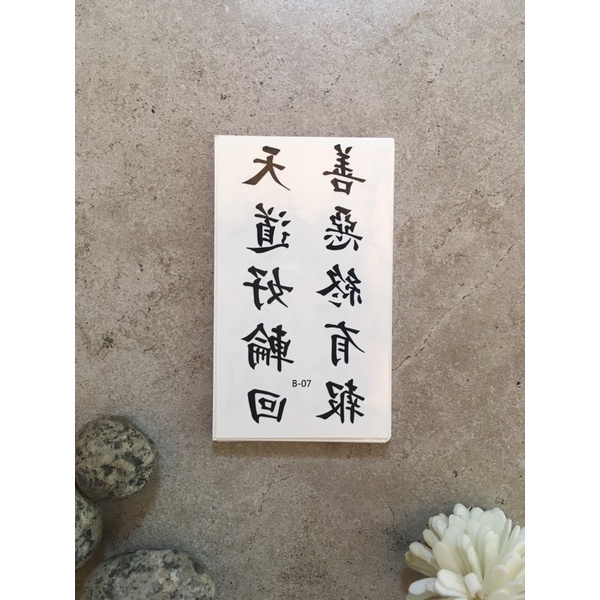 善惡終有報
天道好輪回
B-07